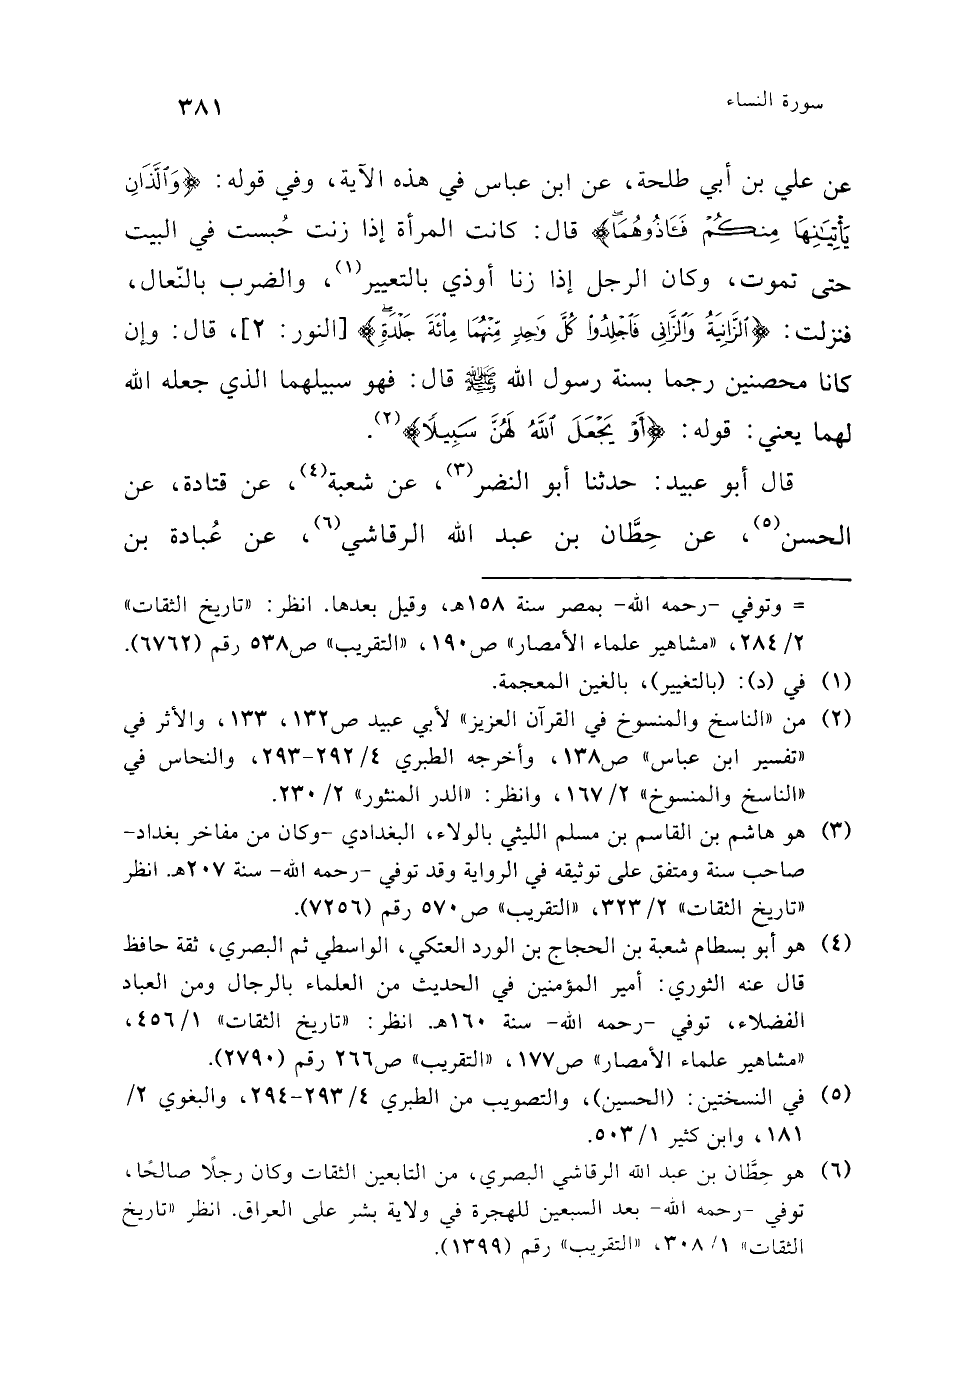 سورة النساء ٣٨١
عن علي بن أبي طلحة، عن ابن عباس في هذه الآية، وفي قوله: ﴿وَٱلَّذَانِ
يَأْتِيَٰنِهَا مِنكُمْ فَـَٔاذُوهُمَاۖ﴾ قال: كانت المرأة إذا زنت حُبست في البيت
حتى تموت، وكان الرجل إذا زنا أوذي بالتعيير(١)، والضرب بالنّعال،
فنزلت: ﴿ٱلزَّانِيَةُ وَٱلزَّانِى فَٱجْلِدُوا۟ كُلَّ وَٰحِدٍ مِّنْهُمَا مِا۟ئَةَ جَلْدَةٍۖ﴾ [النور: ٢]، قال: وإن
كانا محصنين رجما بسنة رسول الله ﷺ قال: فهو سبيلهما الذي جعله الله
لهما يعني: قوله: ﴿أَوْ يَجْعَلَ ٱللَّهُ لَهُنَّ سَبِيلًا﴾(٢).
قال أبو عبيد: حدثنا أبو النضر(٣)، عن شعبة(٤)، عن قتادة، عن
الحسن(٥)، عن حِطَّان بن عبد الله الرقاشي(٦)، عن عُبادة بن
= وتوفي -رحمه الله- بمصر سنة ١٥٨هـ، وقيل بعدها. انظر: «تاريخ الثقات»
٢/ ٢٨٤، «مشاهير علماء الأمصار» ص١٩٠، «التقريب» ص٥٣٨ رقم (٦٧٦٢).
(١) في (د): (بالتغيير)، بالغين المعجمة.
(٢) من «الناسخ والمنسوخ في القرآن العزيز» لأبي عبيد ص١٣٢، ١٣٣، والأثر في
«تفسير ابن عباس» ص١٣٨، وأخرجه الطبري ٤/ ٢٩٢-٢٩٣، والنحاس في
«الناسخ والمنسوخ» ٢/ ١٦٧، وانظر: «الدر المنثور» ٢/ ٢٣٠.
(٣) هو هاشم بن القاسم بن مسلم الليثي بالولاء، البغدادي -وكان من مفاخر بغداد-
صاحب سنة ومتفق على توثيقه في الرواية وقد توفي -رحمه الله- سنة ٢٠٧هـ. انظر
«تاريخ الثقات» ٢/ ٣٢٣، «التقريب» ص٥٧٠ رقم (٧٢٥٦).
(٤) هو أبو بسطام شعبة بن الحجاج بن الورد العتكي، الواسطي ثم البصري، ثقة حافظ
قال عنه الثوري: أمير المؤمنين في الحديث من العلماء بالرجال ومن العباد
الفضلاء، توفي -رحمه الله- سنة ١٦٠هـ. انظر: «تاريخ الثقات» ١/ ٤٥٦،
«مشاهير علماء الأمصار» ص١٧٧، «التقريب» ص٢٦٦ رقم (٢٧٩٠).
(٥) في النسختين: (الحسين)، والتصويب من الطبري ٤/ ٢٩٣-٢٩٤، والبغوي ٢/
١٨١، وابن كثير ١/ ٥٠٣.
(٦) هو حِطَّان بن عبد الله الرقاشي البصري، من التابعين الثقات وكان رجلًا صالحًا،
توفي -رحمه الله- بعد السبعين للهجرة في ولاية بشر على العراق. انظر «تاريخ
الثقات» ١/ ٣٠٨، «التقريب» رقم (١٣٩٩).